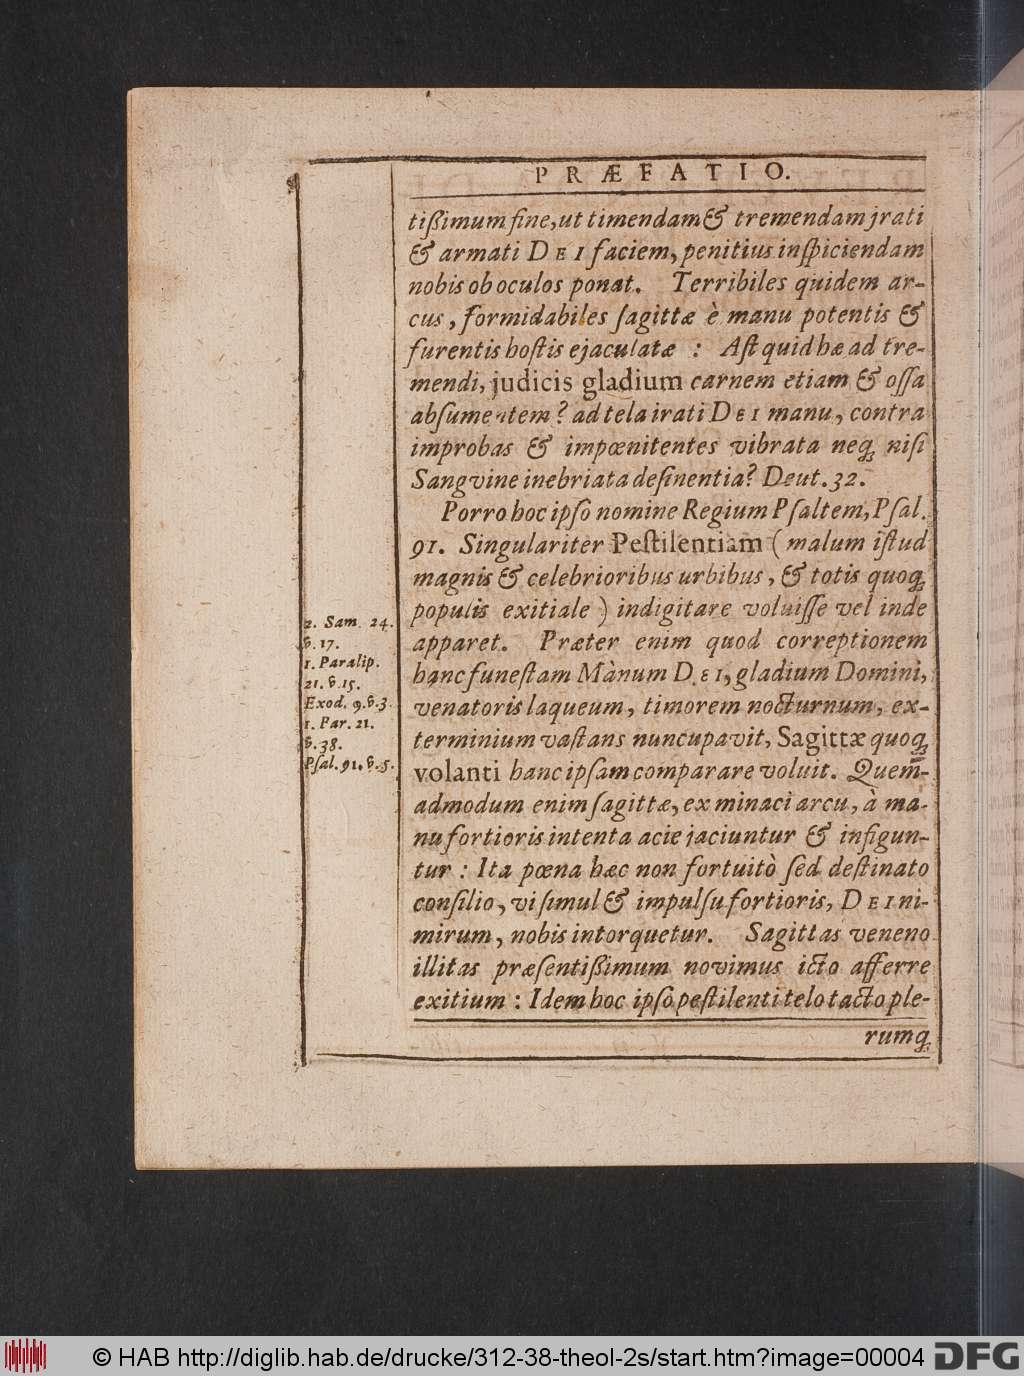 PRÆFATIO.
tißimum fine, ut timendam & tremendam jrati
& armati DEI faciem, penitius inſpiciendam
nobis ob oculos ponat. Terribiles quidem ar-
cus, formidabiles ſagittæ è manu potentis &
furentis hoſtis ejaculatæ : Aſt quid hæ ad tre-
mendi, judicis gladium carnem etiam & oſſa
abſumentem? ad tela irati DEI manu, contra
improbas & impœnitentes vibrata neq; niſi
Sangvine inebriata deſinentia? Deut. 32.
Porro hoc ipſo nomine Regium Pſaltem, Pſal.
91. Singulariter Peſtilentiam (malum iſtud
magnis & celebrioribus urbibus, & totis quoq;
populis exitiale) indigitare voluiſſe vel inde
apparet. Præter enim quod correptionem
hanc funeſtam Mànum DEI, gladium Domini,
venatoris laqueum, timorem nocturnum, ex-
terminium vaſtans nuncupavit, Sagittæ quoq;
volanti hanc ipſam comparare voluit. Quem̄-
admodum enim ſagittæ, ex minaci arcu, à ma-
nu fortioris intenta acie jaciuntur & infigun-
tur : Ita pœna hæc non fortuitò ſed deſtinato
conſilio, vi ſimul & impulſu fortioris, DEI ni-
mirum, nobis intorquetur. Sagittas veneno
illitas præſentißimum novimus icto afferre
exitium : Idem hoc ipſo peſtilenti telo tacto ple-
rumq;
2. Sam. 24.
v. 17.
1. Paralip.
21. v. 15.
Exod. 9. v. 3.
1. Par. 21.
v. 38.
Pſal. 91. v. 5.
© HAB http://diglib.hab.de/drucke/312-38-theol-2s/start.htm?image=00004
DFG